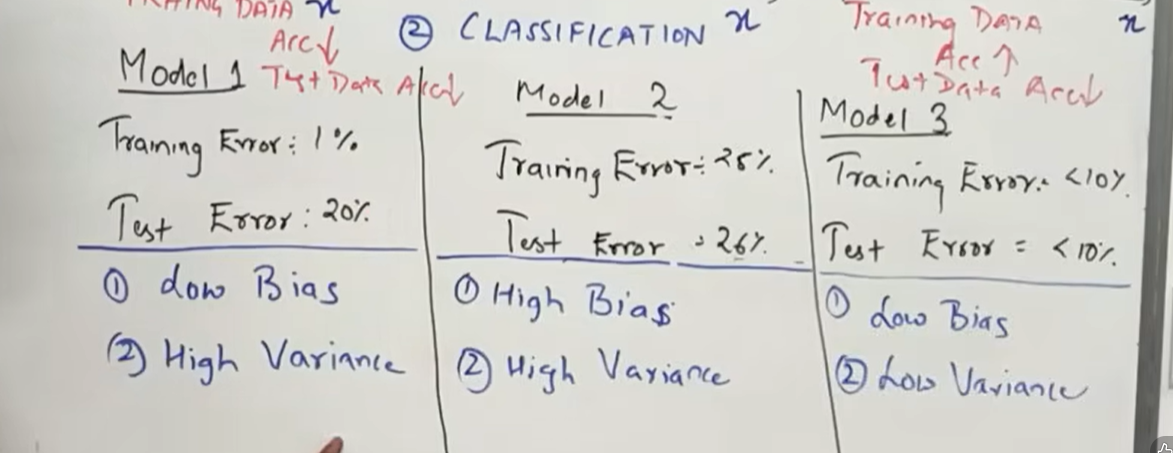 TRAINING DATA x
Acc↓
Test Data Acc↓
② CLASSIFICATION x
Training DATA x
Acc ↑
Test Data Acc↓
Model 1
Training Error: 1%
Test Error: 20%
① Low Bias
② High Variance
Model 2
Training Error: 25%
Test Error: 26%
① High Bias
② High Variance
Model 3
Training Error: <10%
Test Error = <10%
① Low Bias
② Low Variance